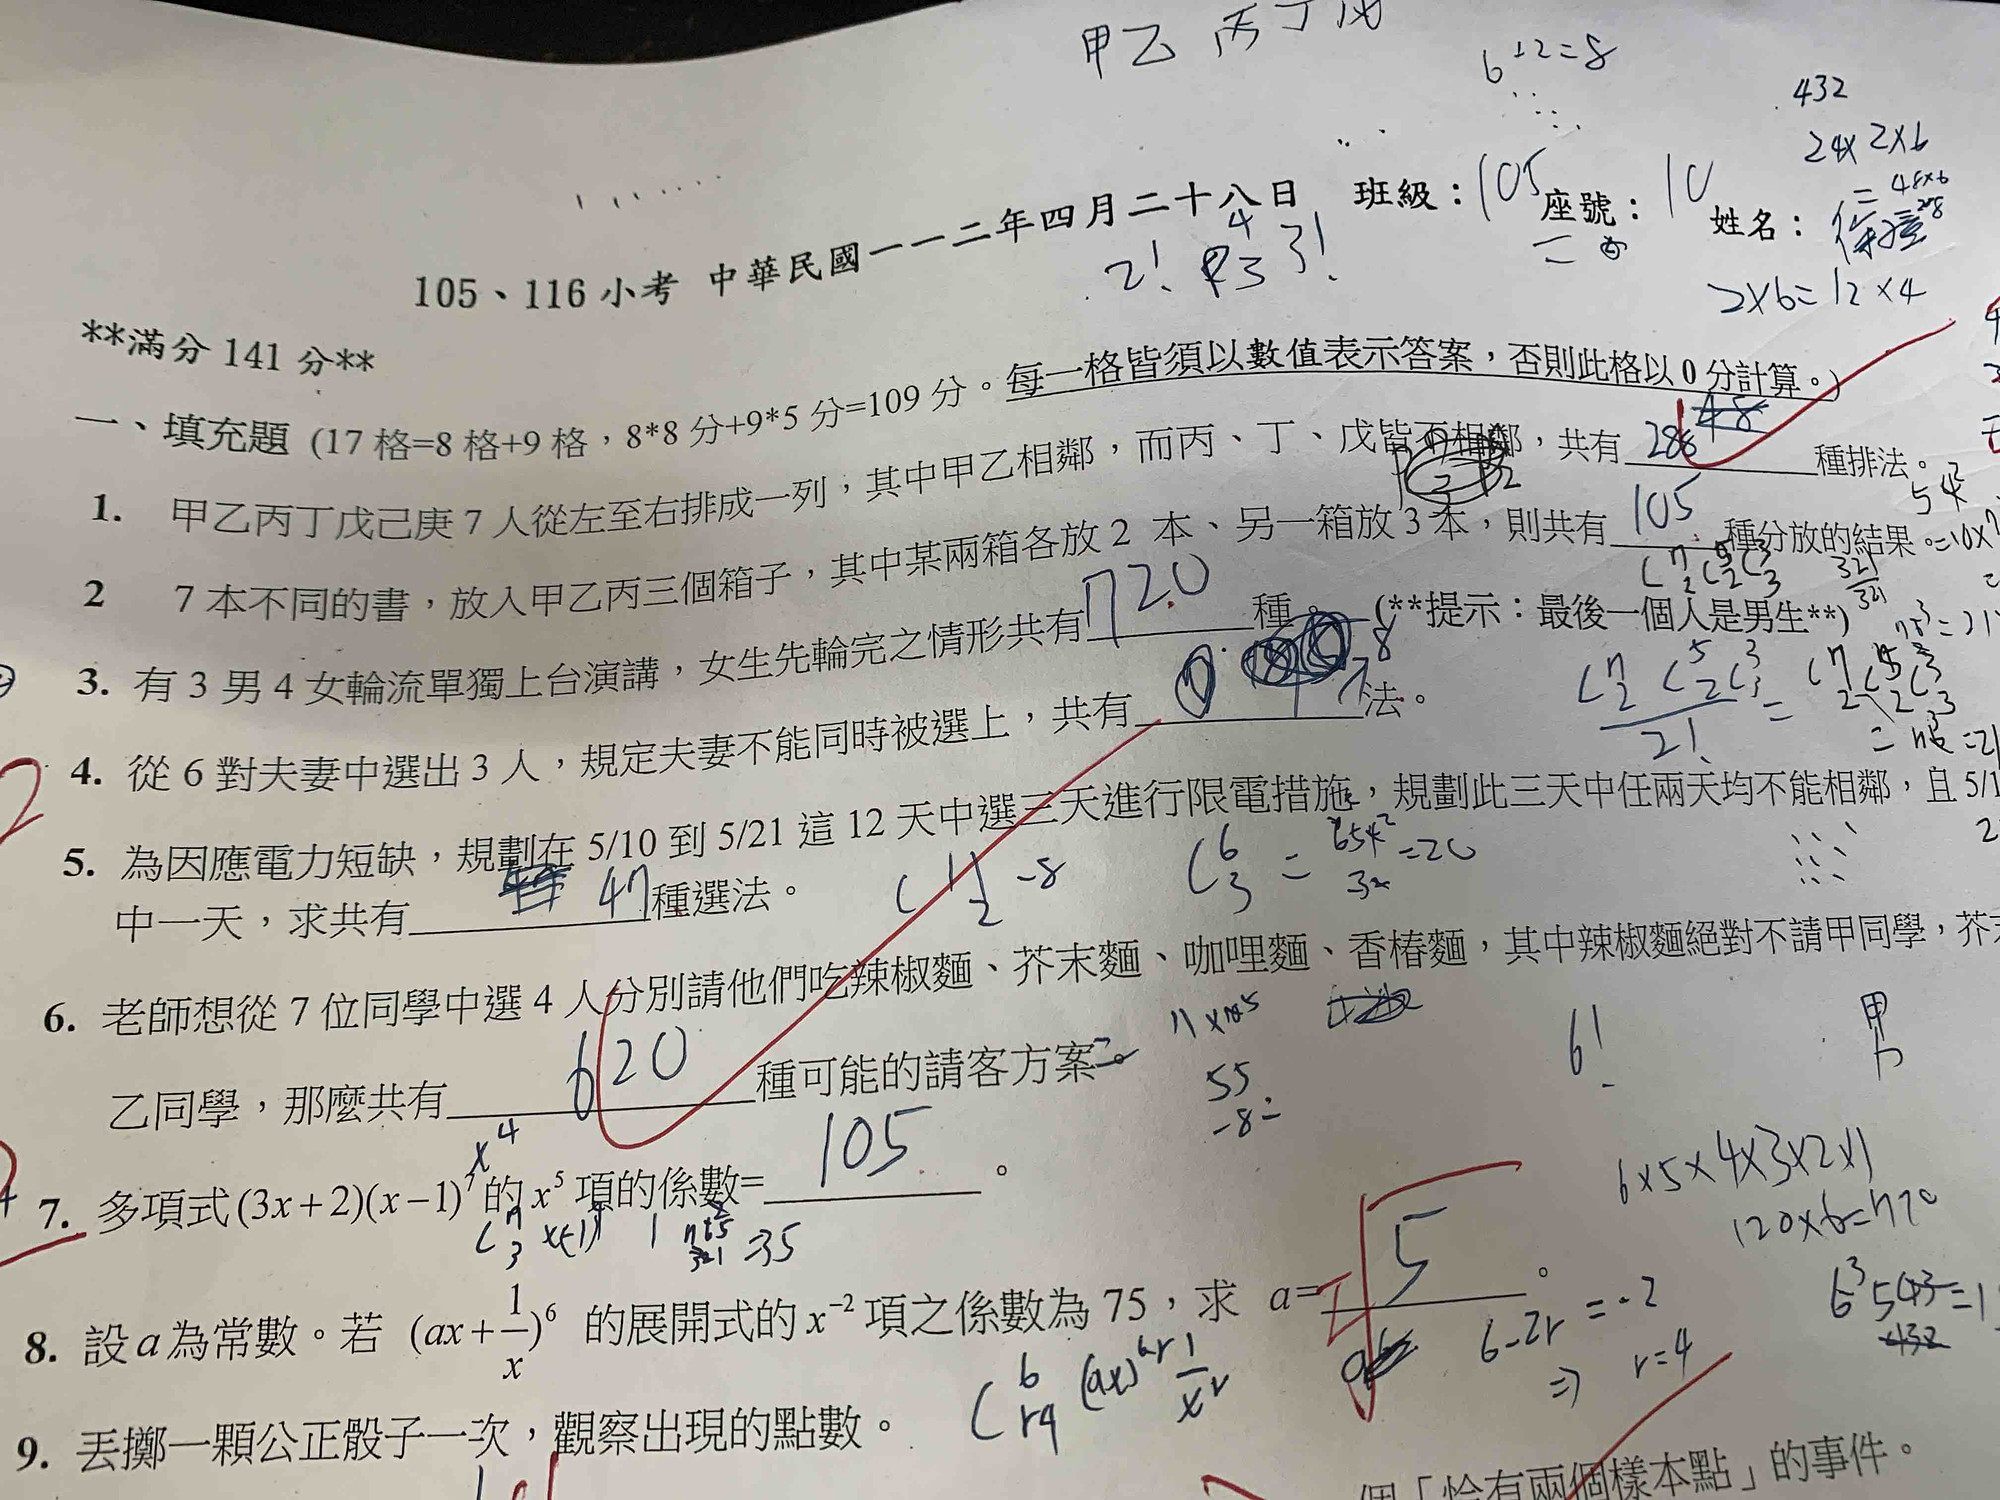 甲乙 丙丁戊
6+2=8
432
24×2×6
=48×6
288
105、116 小考 中華民國一一二年四月二十八日 班級：105 座號：10 姓名：
2! P 4 3 3!
2×6=12×4
**滿分 141 分**
一、填充題 (17 格=8 格+9 格，8*8 分+9*5 分=109 分。每一格皆須以數值表示答案，否則此格以 0 分計算。)
1. 甲乙丙丁戊己庚 7 人從左至右排成一列，其中甲乙相鄰，而丙、丁、戊皆不相鄰，共有 288 種排法。
2 7 本不同的書，放入甲乙丙三個箱子，其中某兩箱各放 2 本、另一箱放 3 本，則共有 105 種分放的結果。
C 7 2 C 5 2 C 3 3
3. 有 3 男 4 女輪流單獨上台演講，女生先輪完之情形共有 720 種。 (**提示：最後一個人是男生**)
C 7 2 C 5 2 C 3 3 / 2! =
4. 從 6 對夫妻中選出 3 人，規定夫妻不能同時被選上，共有 法。
5. 為因應電力短缺，規劃在 5/10 到 5/21 這 12 天中選三天進行限電措施，規劃此三天中任兩天均不能相鄰，且 5/1
中一天，求共有 47 種選法。
C 11 2 -8
C 6 3 = =20
6. 老師想從 7 位同學中選 4 人分別請他們吃辣椒麵、芥末麵、咖哩麵、香椿麵，其中辣椒麵絕對不請甲同學，芥末
乙同學，那麼共有 620 種可能的請客方案。
55
-8=
6!
x⁴
7. 多項式 (3x+2)(x−1)⁷ 的 x⁵ 項的係數= 105 。
35
6×5×4×3×2×1
120×6=720
8. 設 a 為常數。若 (ax+1/x)⁶ 的展開式的 x⁻² 項之係數為 75，求 a= 5 。
6-2r=-2
⇒ r=4
9. 丟擲一顆公正骰子一次，觀察出現的點數。
個「恰有兩個樣本點」的事件。